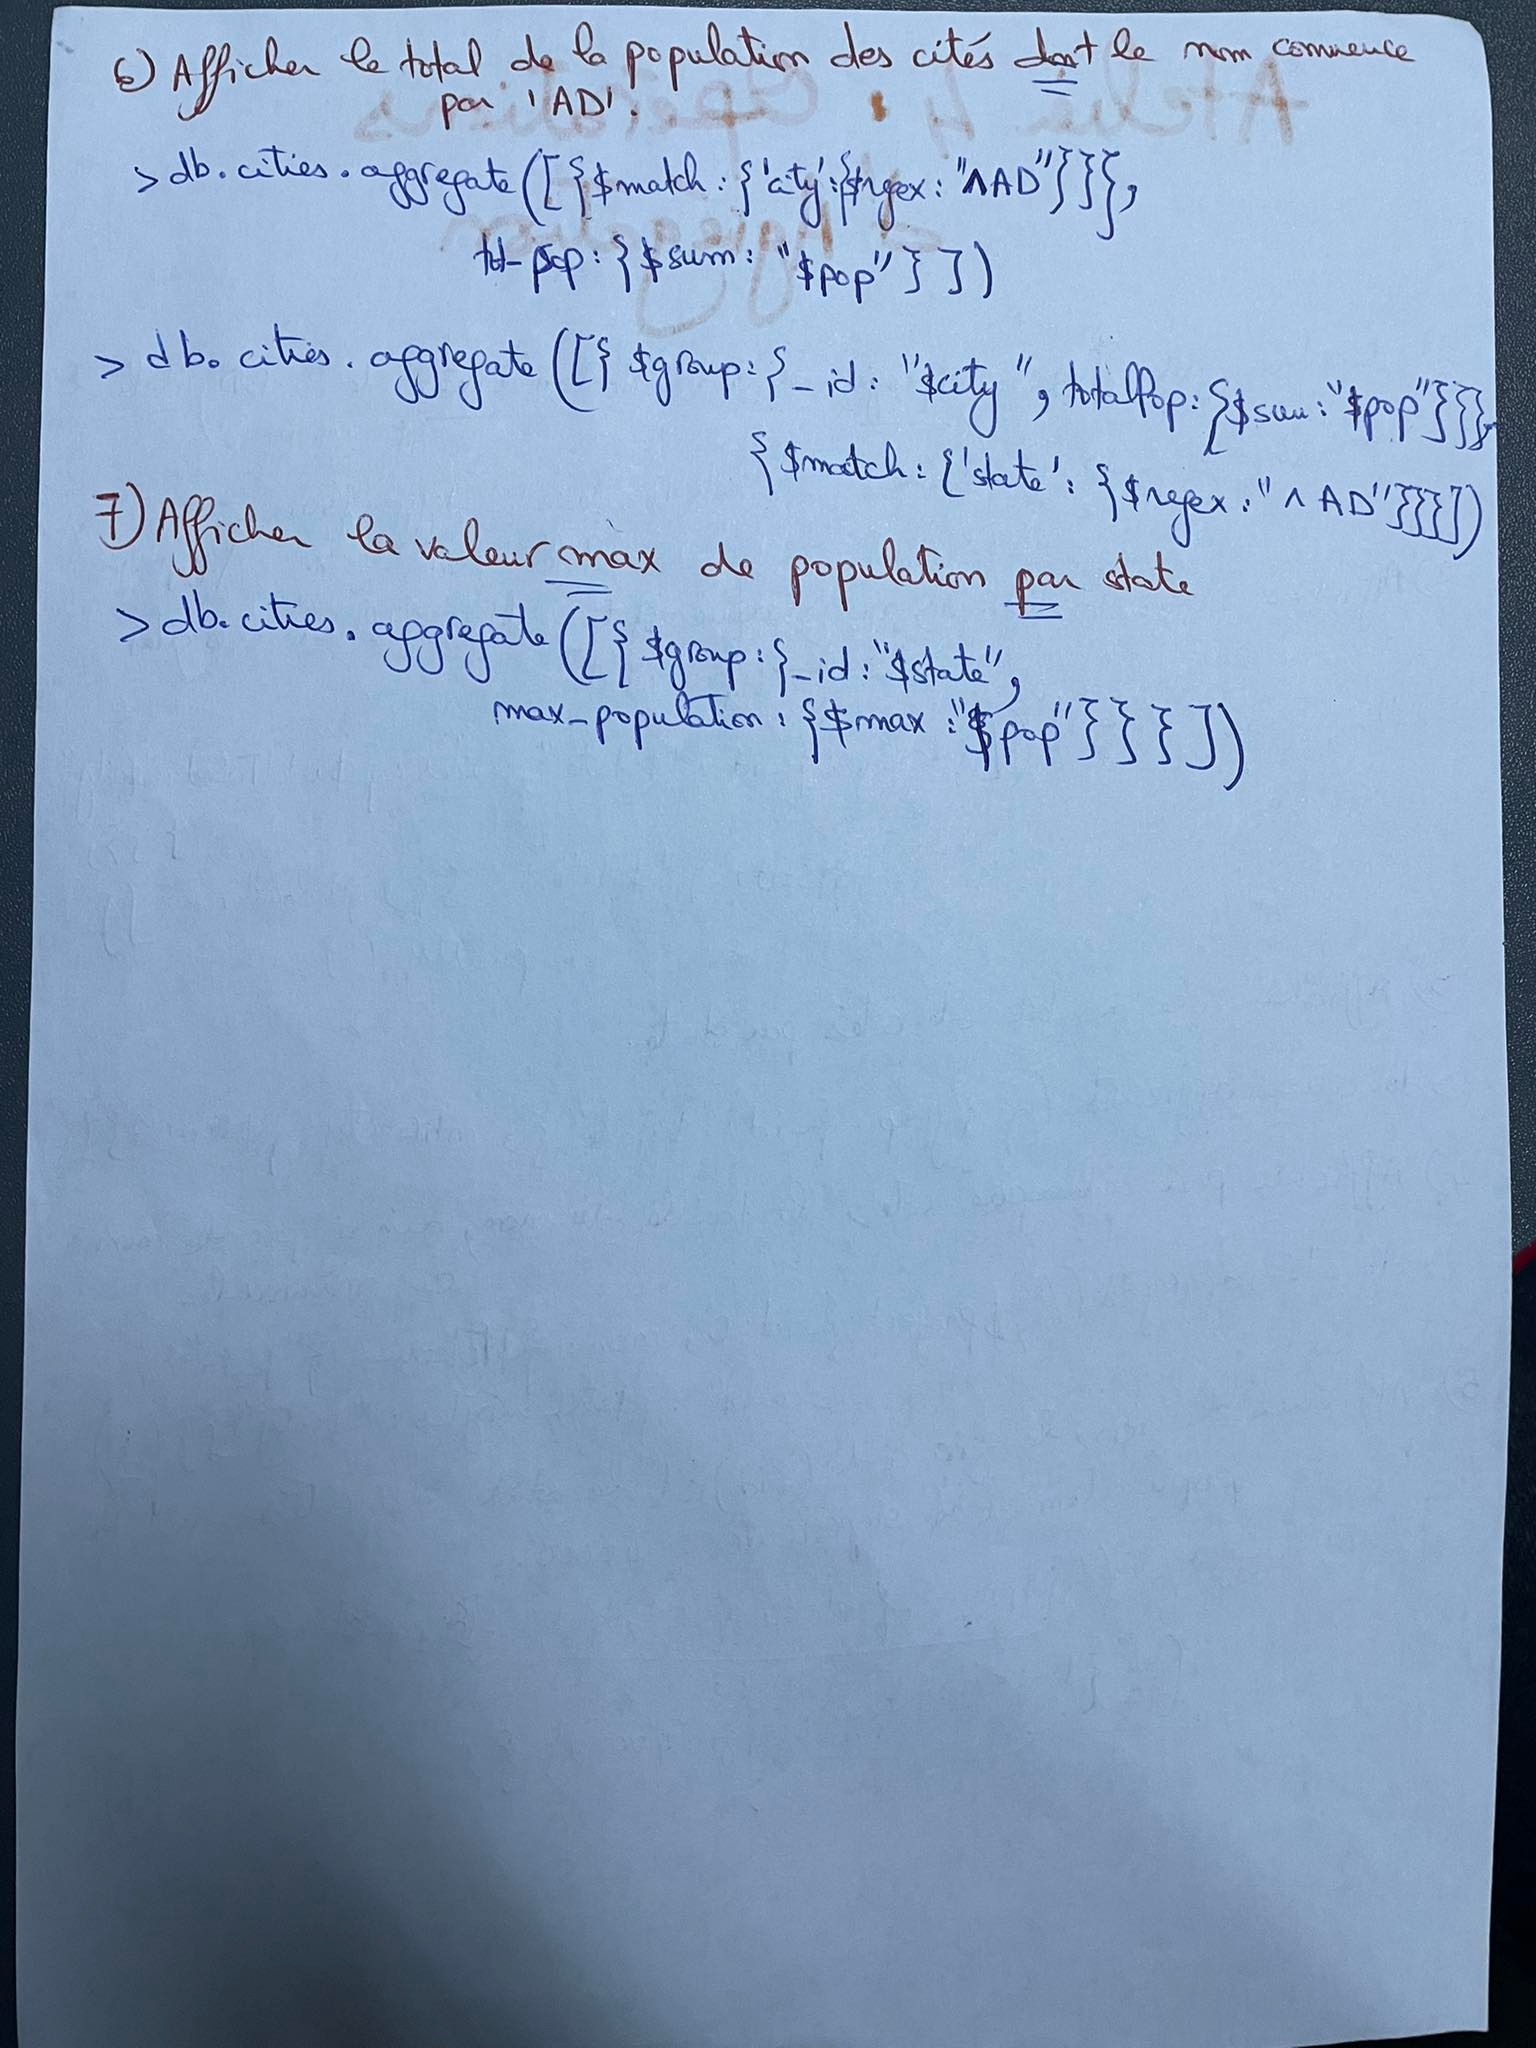 6) Afficher le total de la population des cités dont le nom commence
par 'AD'.
> db.cities.aggregate([{$match:{'city':{$regex:"^AD"}}},
tot-pop:{$sum:"$pop"}])
> db.cities.aggregate([{$group:{_id:"$city", totalPop:{$sum:"$pop"}}},
{$match:{'state':{$regex:"^AD"}}}])
7) Afficher la valeur max de population par state
> db.cities.aggregate([{$group:{_id:"$state",
max_population:{$max:"$pop"}}}])